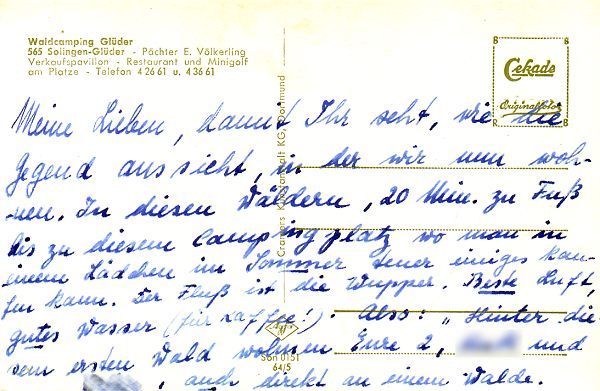 Waldcamping Glüder
565 Solingen-Glüder - Pächter E. Völkerling
Verkaufspavillon - Restaurant und Minigolf
am Platze - Telefon 4 26 61 u. 4 36 61
Cekade
Originalfoto
Meine Lieben, damit Ihr seht, wie die
Gegend aussieht, in der wir nun woh-
nen. In diesen Wäldern, 20 Min. zu Fuß
bis zu diesem Campingplatz wo man in
einem Lädchen im Sommer teuer einiges kau-
fen kann. Der Fluß ist die Wupper. Beste Luft,
gutes Wasser (für Kaffee!). Also: "Hinter die-
sem ersten Wald wohnen Eure 2, und
, auch direkt an einem Walde.
KG, Dortmund
Son 0151
64/5